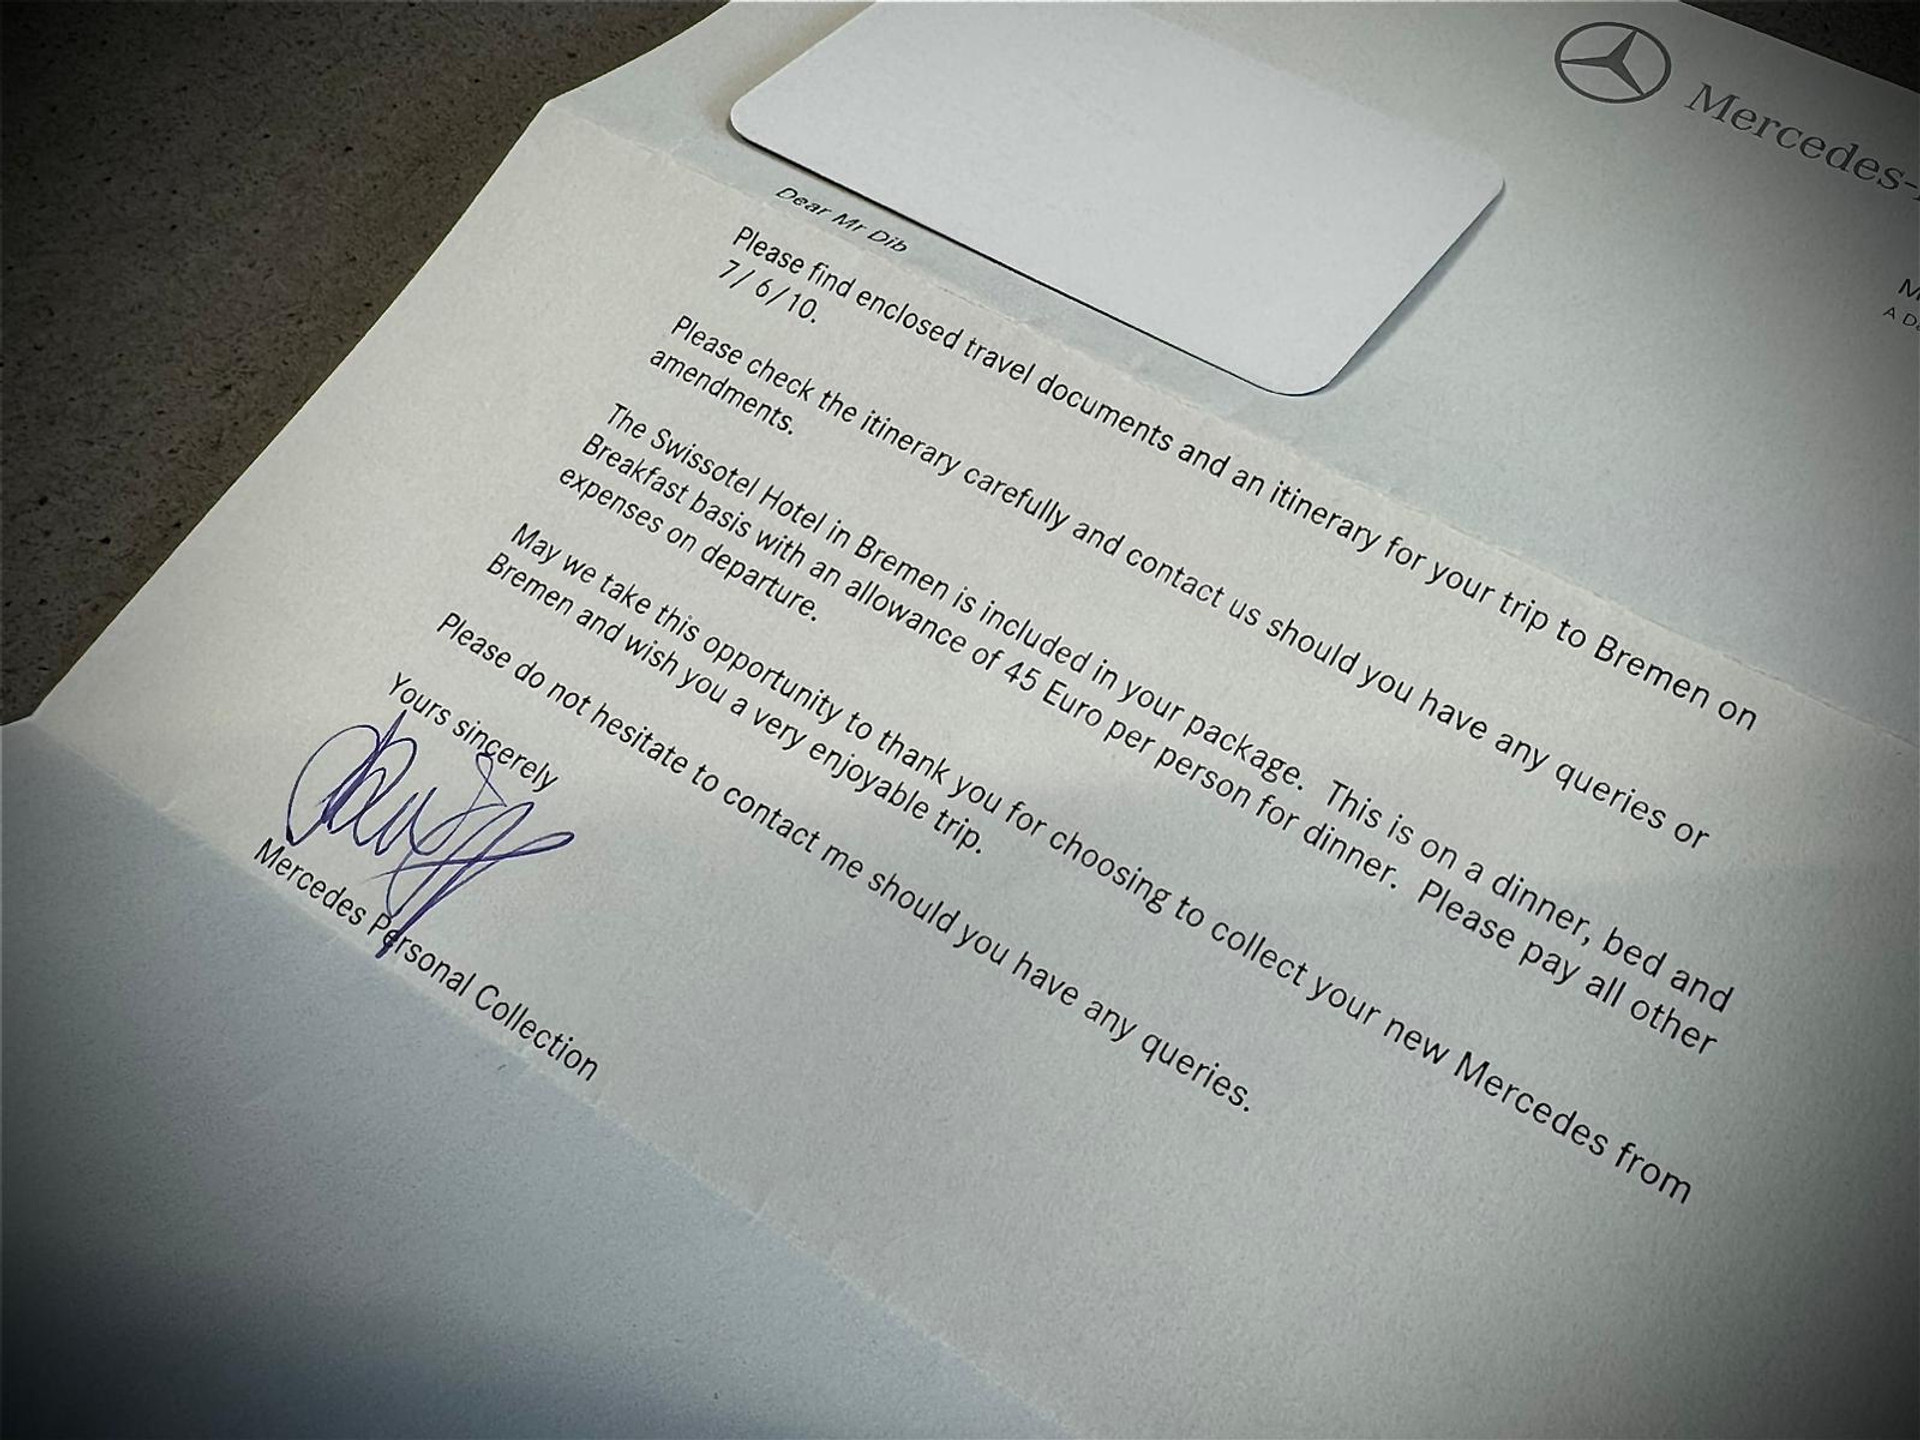 Mercedes-
M
A D
Dear Mr Dib
Please find enclosed travel documents and an itinerary for your trip to Bremen on
7/ 6/10.
Please check the itinerary carefully and contact us should you have any queries or
amendments.
The Swissotel Hotel in Bremen is included in your package.  This is on a dinner, bed and
Breakfast basis with an allowance of 45 Euro per person for dinner.  Please pay all other
expenses on departure.
May we take this opportunity to thank you for choosing to collect your new Mercedes from
Bremen and wish you a very enjoyable trip.
Please do not hesitate to contact me should you have any queries.
Yours sincerely
Mercedes Personal Collection